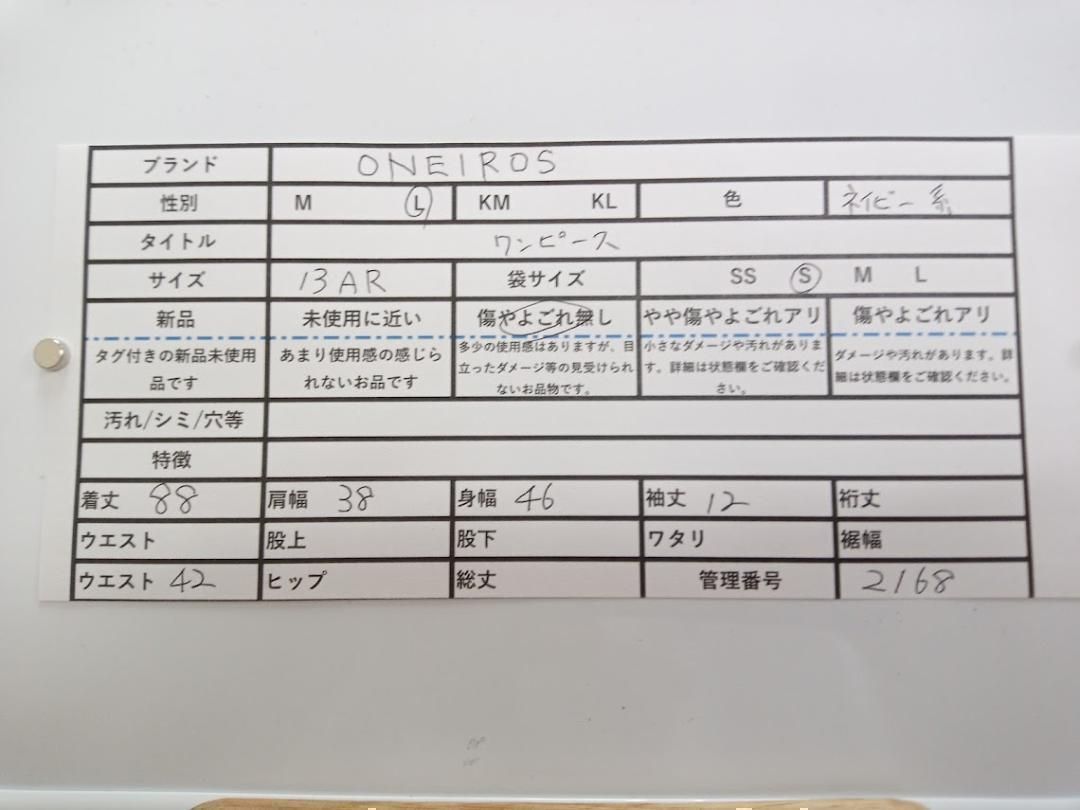 ブランド ONEIROS
性別 M L KM KL 色 ネイビー系
タイトル ワンピース
サイズ 13AR 袋サイズ SS S M L
新品 未使用に近い 傷やよごれ無し やや傷やよごれアリ 傷やよごれアリ
タグ付きの新品未使用品です
あまり使用感の感じられないお品です
多少の使用感はありますが、目立ったダメージ等の見受けられないお品物です。
小さなダメージや汚れがあります。詳細は状態欄をご確認ください。
ダメージや汚れがあります。詳細は状態欄をご確認ください。
汚れ/シミ/穴等
特徴
着丈 88 肩幅 38 身幅 46 袖丈 12 裄丈
ウエスト 股上 股下 ワタリ 裾幅
ウエスト 42 ヒップ 総丈 管理番号 2168